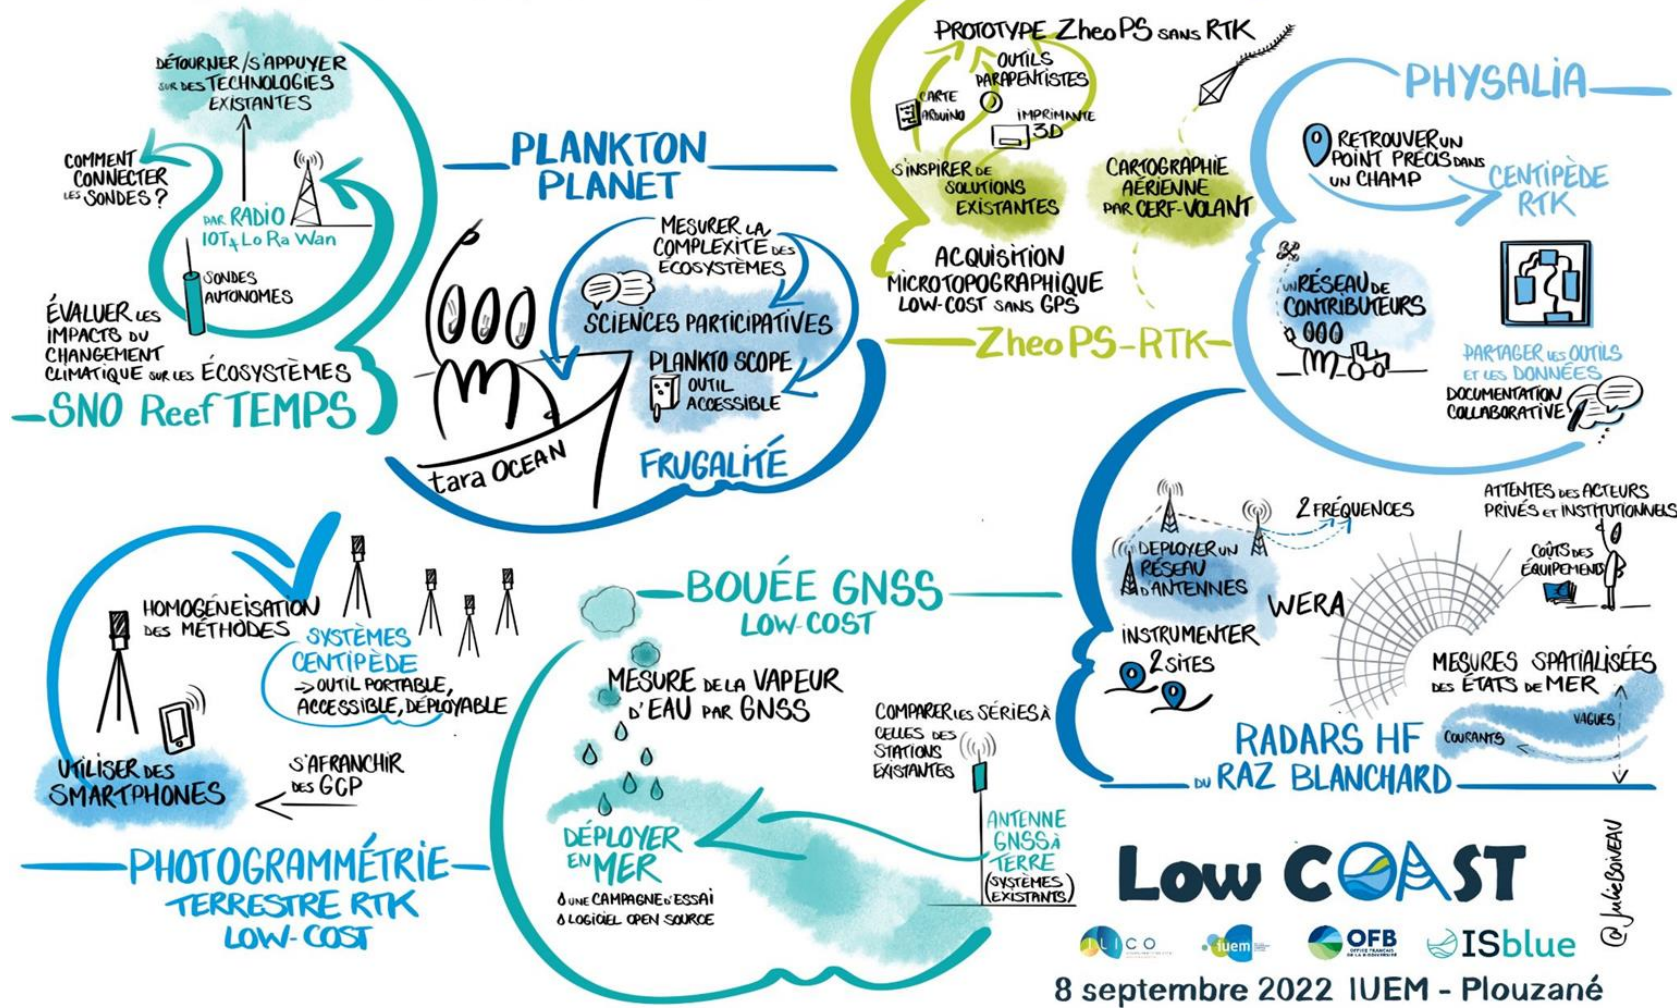 DÉTOURNER/S'APPUYER
SUR DES TECHNOLOGIES
EXISTANTES
COMMENT
CONNECTER
LES SONDES ?
PAR RADIO
IOT & LoRaWan
SONDES
AUTONOMES
ÉVALUER LES
IMPACTS DU
CHANGEMENT
CLIMATIQUE SUR LES ÉCOSYSTÈMES
SNO ReefTEMPS
PLANKTON
PLANET
MESURER LA
COMPLEXITÉ DES
ÉCOSYSTÈMES
SCIENCES PARTICIPATIVES
PLANKTO SCOPE
OUTIL
ACCESSIBLE
tara OCEAN
FRUGALITÉ
PROTOTYPE ZheoPS SANS RTK
OUTILS
PARAPENTISTES
CARTE
ARDUINO
IMPRIMANTE
3D
S'INSPIRER DE
SOLUTIONS
EXISTANTES
CARTOGRAPHIE
AÉRIENNE
PAR CERF-VOLANT
ACQUISITION
MICROTOPOGRAPHIQUE
LOW-COST SANS GPS
ZheoPS-RTK
PHYSALIA
RETROUVER UN
POINT PRÉCIS DANS
UN CHAMP
CENTIPÈDE
RTK
UN RÉSEAU DE
CONTRIBUTEURS
PARTAGER LES OUTILS
ET LES DONNÉES
DOCUMENTATION
COLLABORATIVE
HOMOGÉNEISATION
DES MÉTHODES
SYSTÈMES
CENTIPÈDE
→ OUTIL PORTABLE,
ACCESSIBLE, DÉPLOYABLE
UTILISER DES
SMARTPHONES
S'AFRANCHIR
DES GCP
PHOTOGRAMMÉTRIE
TERRESTRE RTK
LOW-COST
BOUÉE GNSS
LOW-COST
MESURE DE LA VAPEUR
D'EAU PAR GNSS
COMPARER LES SÉRIES À
CELLES DES
STATIONS
EXISTANTES
DÉPLOYER
EN MER
UNE CAMPAGNE D'ESSAI
LOGICIEL OPEN SOURCE
ANTENNE
GNSS À
TERRE
(SYSTÈMES
EXISTANTS)
2 FRÉQUENCES
DEPLOYER UN
RÉSEAU
D'ANTENNES
WERA
INSTRUMENTER
2 SITES
ATTENTES DES ACTEURS
PRIVÉS ET INSTITUTIONNELS
COÛTS DES
ÉQUIPEMENTS
MESURES SPATIALISÉES
DES ÉTATS DE MER
VAGUES
COURANTS
RADARS HF
DU RAZ BLANCHARD
Low COAST
@JulieBoiveau
ILICO
iuem
OFB
OFFICE FRANÇAIS
DE LA BIODIVERSITÉ
ISblue
8 septembre 2022 IUEM - Plouzané